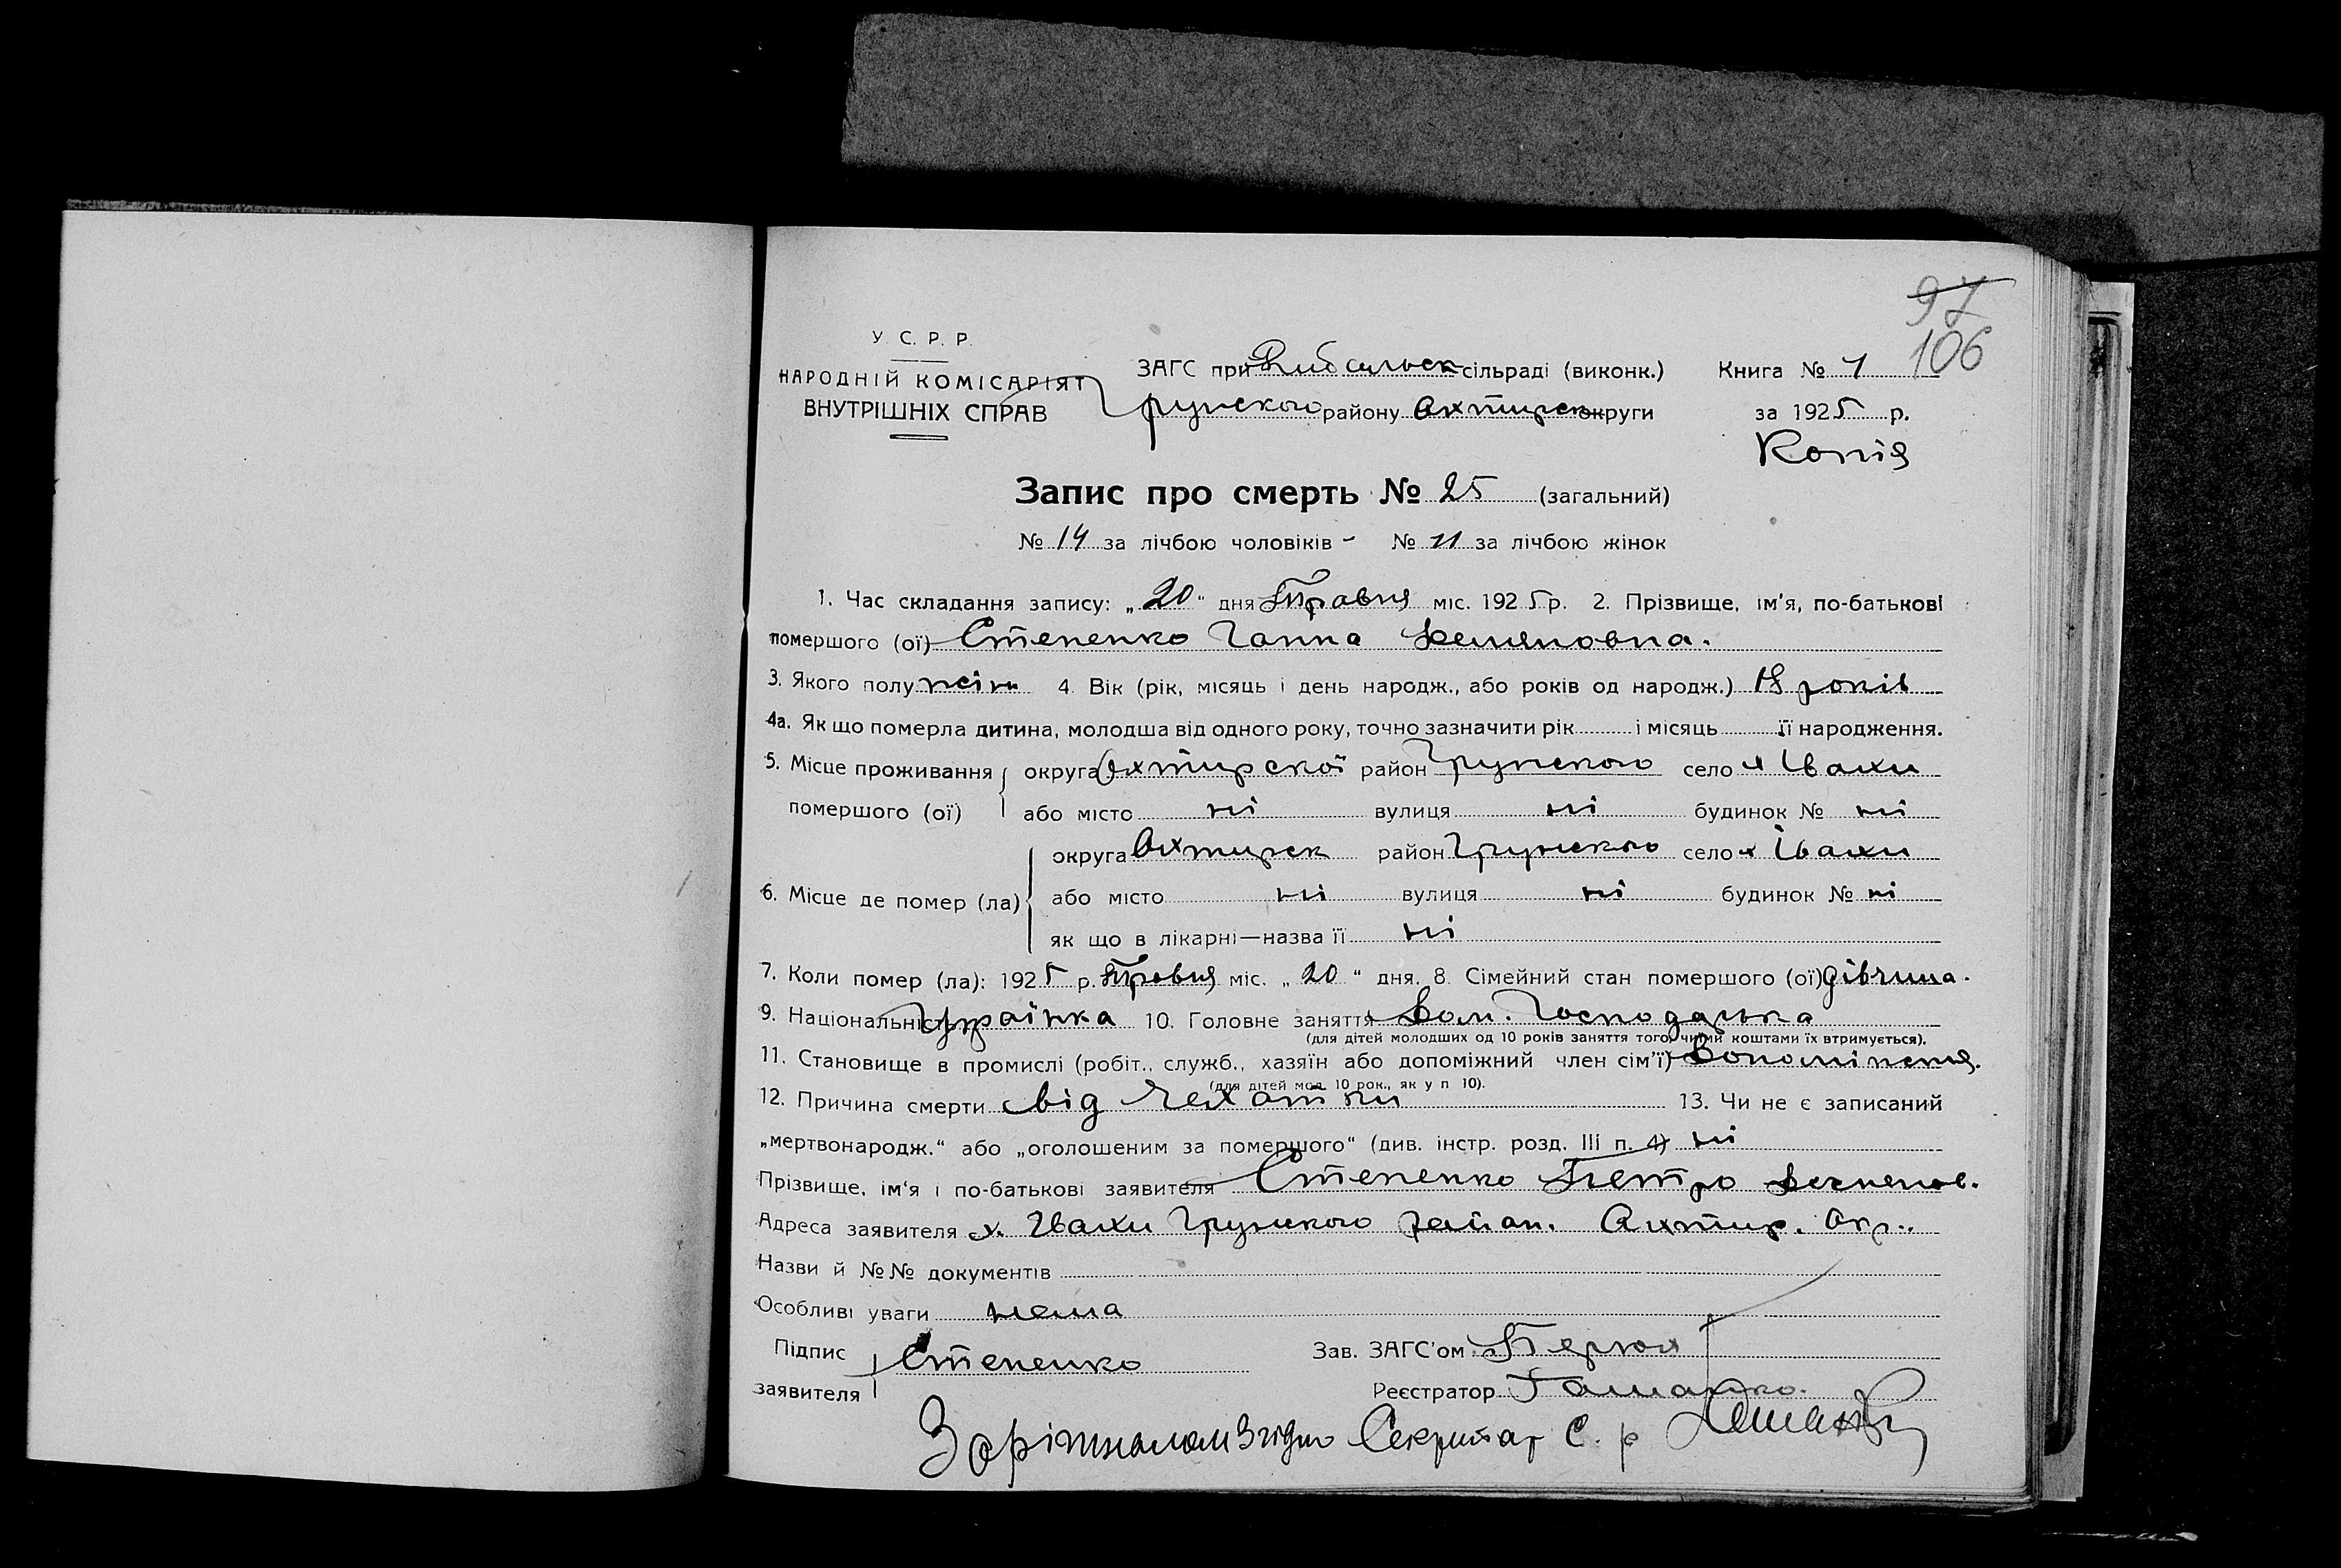 97
106
У. С. Р. Р.
НАРОДНІЙ КОМІСАРІЯТ
ВНУТРІШНІХ СПРАВ
ЗАГС при Рибальськ сільраді (виконк.)
Грунського району Охтирськ округи
Книга № 1
за 1925 р.
Копія
Запис про смерть № 25 (загальний)
№ 14 за лічбою чоловіків - № 11 за лічбою жінок
1. Час складання запису: „20“ дня Травня міс. 1925 р. 2. Прізвище, ім'я, по-батькові
помершого (ої) Степенко Ганна Демяновна.
3. Якого полу жін 4. Вік (рік, місяць і день народж., або років од народж.) 18 років
4а. Як що померла дитина, молодша від одного року, точно зазначити рік і місяць її народження.
5. Місце проживання помершого (ої) округа Охтирської район Грунського село х Івахи
або місто ні вулиця ні будинок № ні
6. Місце де помер (ла) округа Охтирск район Грунського село х Івахи
або місто ні вулиця ні будинок № ні
як що в лікарні—назва її ні
7. Коли помер (ла): 1925 р. Травня міс. „20“ дня. 8. Сімейний стан помершого (ої) дівчина.
9. Національність Українка 10. Головне заняття Дом. Господарька
(для дітей молодших од 10 років заняття того, чиїми коштами їх втримується).
11. Становище в промислі (робіт., служб., хазяїн або допоміжний член сім'ї)
(для дітей мол. 10 рок., як у п 10).
12. Причина смерти від чехатки 13. Чи не є записаний
„мертвонародж.“ або „оголошеним за помершого“ (див. інстр. розд. III п. 4) ні
Прізвище, ім'я і по-батькові заявителя Степенко Петро
Адреса заявителя х. Івахи Грунського район. Охтир. Окр..
Назви й №№ документів
Особливі уваги нема
Підпис заявителя Степенко
Зав. ЗАГС'ом
Реєстратор
З орігіналом згідно Секритар С. р